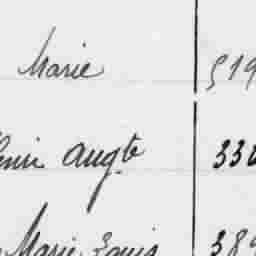 Marie 519
Augte 33
Marie Louis 38